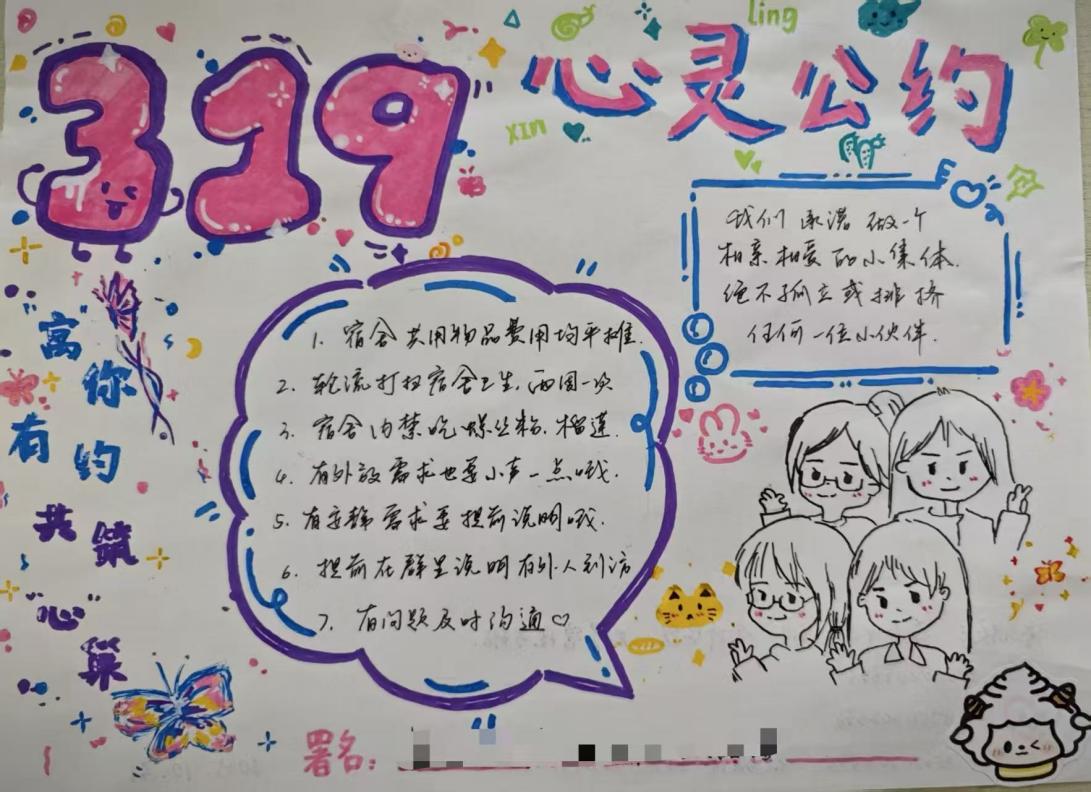 319
心灵公约
xin
ling
我们承诺做一个
相亲相爱的小集体.
绝不孤立或排挤
任何一位小伙伴.
1. 宿舍共用物品费用均平摊.
2. 轮流打扫宿舍卫生.两周一次
3. 宿舍内禁吃螺丝粉.榴莲.
4. 有外放需求也要小声一点哦.
5. 有安静需求要提前说明哦.
6. 提前在群里说明有外人到访
7. 有问题及时沟通♡
“寓”
你
有
约
共
筑
“心”
巢
署名: